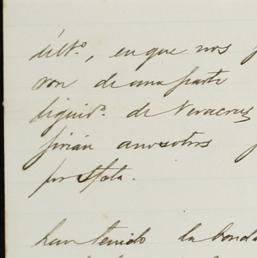 últº, en que nos
ron de una parte
liquidⁿ. de Veracruz
firián a nosotros
por
han tenido la bonda